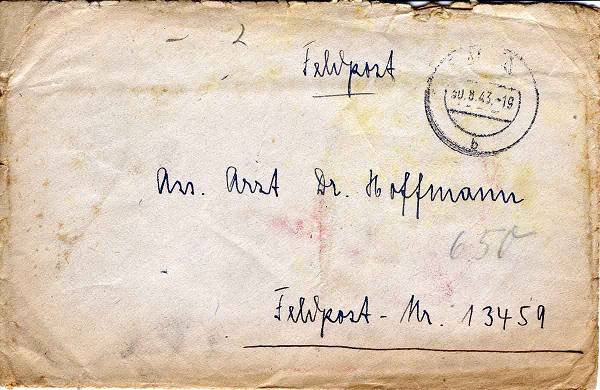 Feldpost
30.8.43.-19
b
Ass. Arzt Dr. Hoffmann
650
Feldpost-Nr. 13459